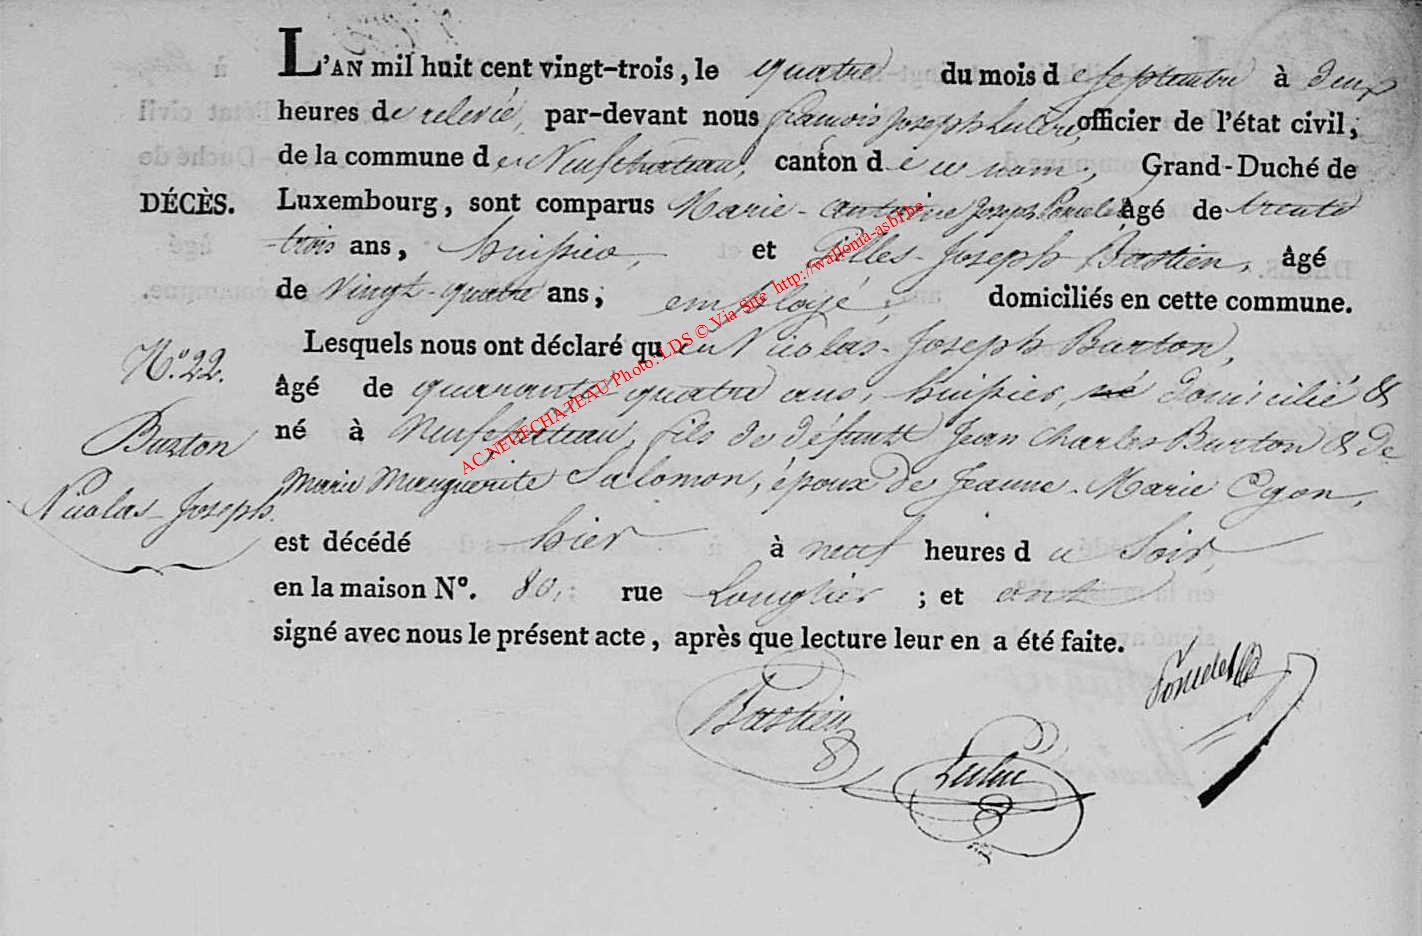 L'AN mil huit cent vingt-trois, le quatre du mois de septembre à deux
heures de relevée, par-devant nous françois Joseph Leclerc, officier de l'état civil,
de la commune de Neufchateau, canton de ce nom, Grand-Duché de
DÉCÈS.
Luxembourg, sont comparus Marie-antoine Joseph Poncelet âgé de trente
trois ans, huissier, et Gilles-Joseph Bastien, âgé
de Vingt-quatre ans; employé, domiciliés en cette commune.
Lesquels nous ont déclaré que Nicolas-Joseph Burton,
N.° 22.
âgé de quarante-quatre ans, huissier, né domicilié &
Burton
né à Neufchateau, fils de défunts Jean Charles Burton & de
Nicolas-Joseph.
Marie Marguerite Salomon, époux de Jeanne-Marie Ogon,
est décédé hier à neuf heures du Soir,
en la maison N°. 80, rue Longlier; et ont
signé avec nous le présent acte, après que lecture leur en a été faite.
Poncelet
Bastien
Leclerc
AC NEUFCHATEAU Photo: LDS © Via Site http://wallonia-asbl.be